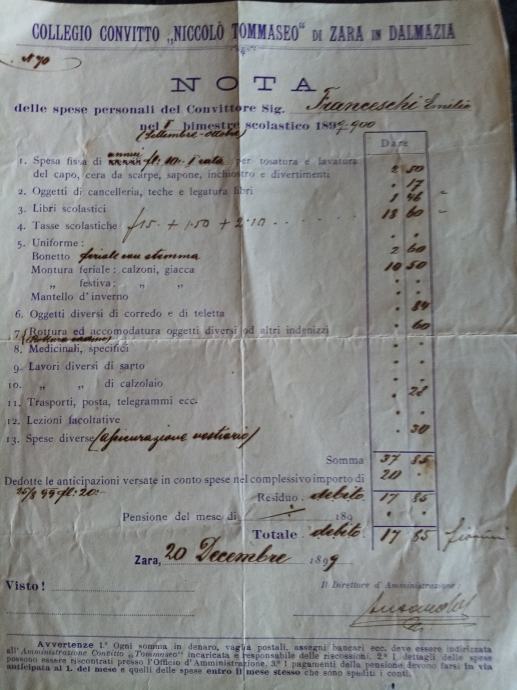 COLLEGIO CONVITTO „NICCOLÒ TOMMASEO“ DI ZARA IN DALMAZIA
N 70
NOTA
delle spese personali del Convittore Sig. Franceschi Emilio
nel I bimestre scolastico 1899-900
(Settembre-ottobre)
Dare
1. Spesa fissa di annui fl: 10.- I rata per tosatura e lavatura
del capo, cera da scarpe, sapone, inchiostro e divertimenti 2 50
2. Oggetti di cancelleria, teche e legatura libri . 17
3. Libri scolastici 1 46
4. Tasse scolastiche f 15. + 1.50 + 2.10 18 60
5. Uniforme:
Bonetto feriale con stemma 2 60
Montura feriale: calzoni, giacca 10 50
„ festiva: „ „
Mantello d'inverno
6. Oggetti diversi di corredo e di teletta . 84
7. Rottura ed accomodatura oggetti diversi od altri indenizzi . 60
(Rottura
8. Medicinali, specifici
9. Lavori diversi di sarto
10. „ „ di calzolaio
11. Trasporti, posta, telegrammi ecc. . 28
12. Lezioni facoltative
13. Spese diverse (assicurazione vestiario) . 30
Somma 37 85
Dedotte le anticipazioni versate in conto spese nel complessivo importo di 20 .
25/8 99 fl: 20.-
Residuo debito 17 85
Pensione del mese di 189
Totale debito. 17 85
Zara, 20 Decembre 1899
Visto!
Il Direttore d'Amministrazione:
Avvertenze 1.° Ogni somma in denaro, vaglia postali, assegni bancari ecc. deve essere indirizzata
all'Amministrazione Convitto „Tommaseo“ incaricata e responsabile delle riscossioni. 2.° I dettagli delle spese
possono essere riscontrati presso l'Officio d'Amministrazione. 3.° I pagamenti della pensione devono farsi in via
anticipata al 1. del mese e quelli delle spese entro il mese stesso che sono spediti i conti.